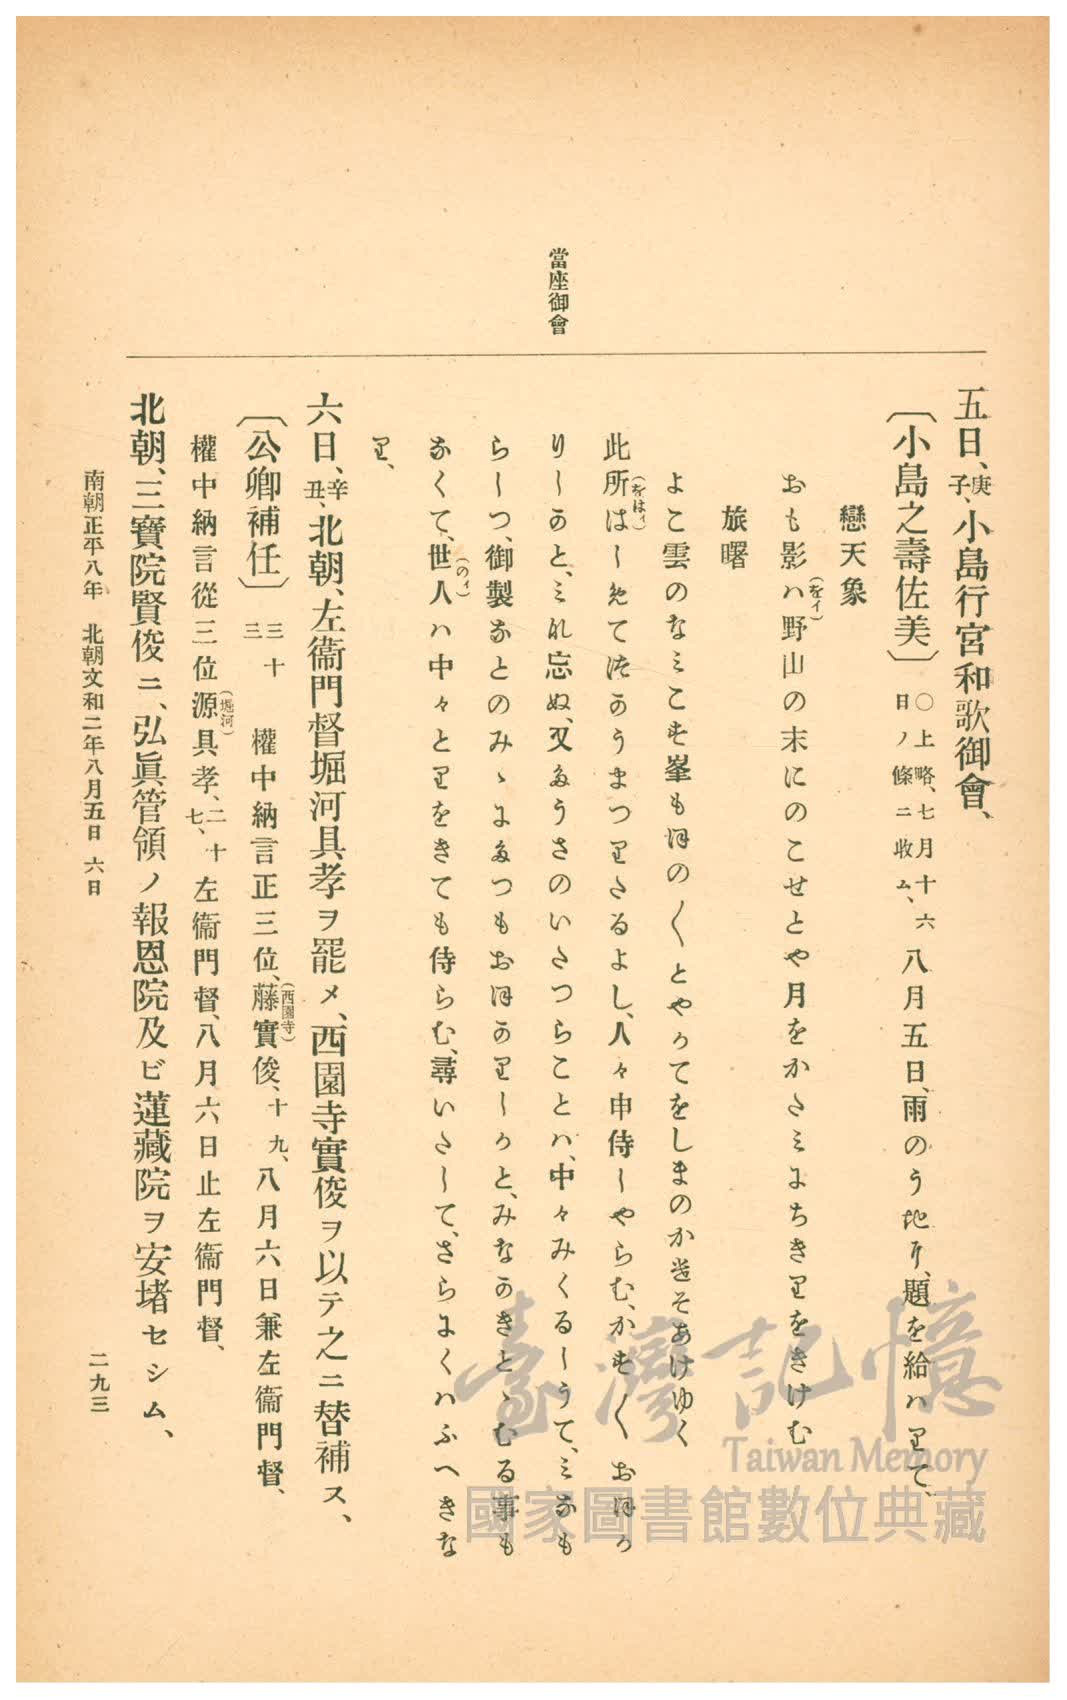 當座御會
五日、庚子、小島行宮和歌御會、
〔小島之壽佐美〕〇上略、七月十六日ノ條ニ收ム、八月五日、雨のうち地り、題を給ハりて、
戀天象
おも影ハ(をイ)野山の末にのこせとや月をかたミにちきりをきけむ
旅曙
よこ雲のなミこす峯もほの〱とやかてをしまのかせそあけゆく
此所は(をはイ)しめてほかうまつりたるよし、人々申侍しやらむ、かす〱おほか
りしかと、ミれ忘ぬ、又たうさのいたつらことハ、中々みくるしうて、ミなも
らしつ、御製なとのみゝにたつもおほかりしかと、みなかきとゝむる事も
なくて、世人(のイ)ハ中々とりをきても侍らむ、尋いたして、さらにくハふへきな
り、
六日、辛丑、北朝、左衞門督堀河具孝ヲ罷メ、西園寺實俊ヲ以テ之ニ替補ス、
〔公卿補任〕三十三　權中納言正三位、藤(西園寺)實俊、十九、八月六日兼左衞門督、
權中納言從三位源(堀河)具孝、二十七、左衞門督、八月六日止左衞門督、
北朝、三寶院賢俊ニ、弘眞管領ノ報恩院及ビ蓮藏院ヲ安堵セシム、
南朝正平八年　北朝文和二年八月五日　六日
二九三
臺灣記憶
Taiwan Memory
國家圖書館數位典藏